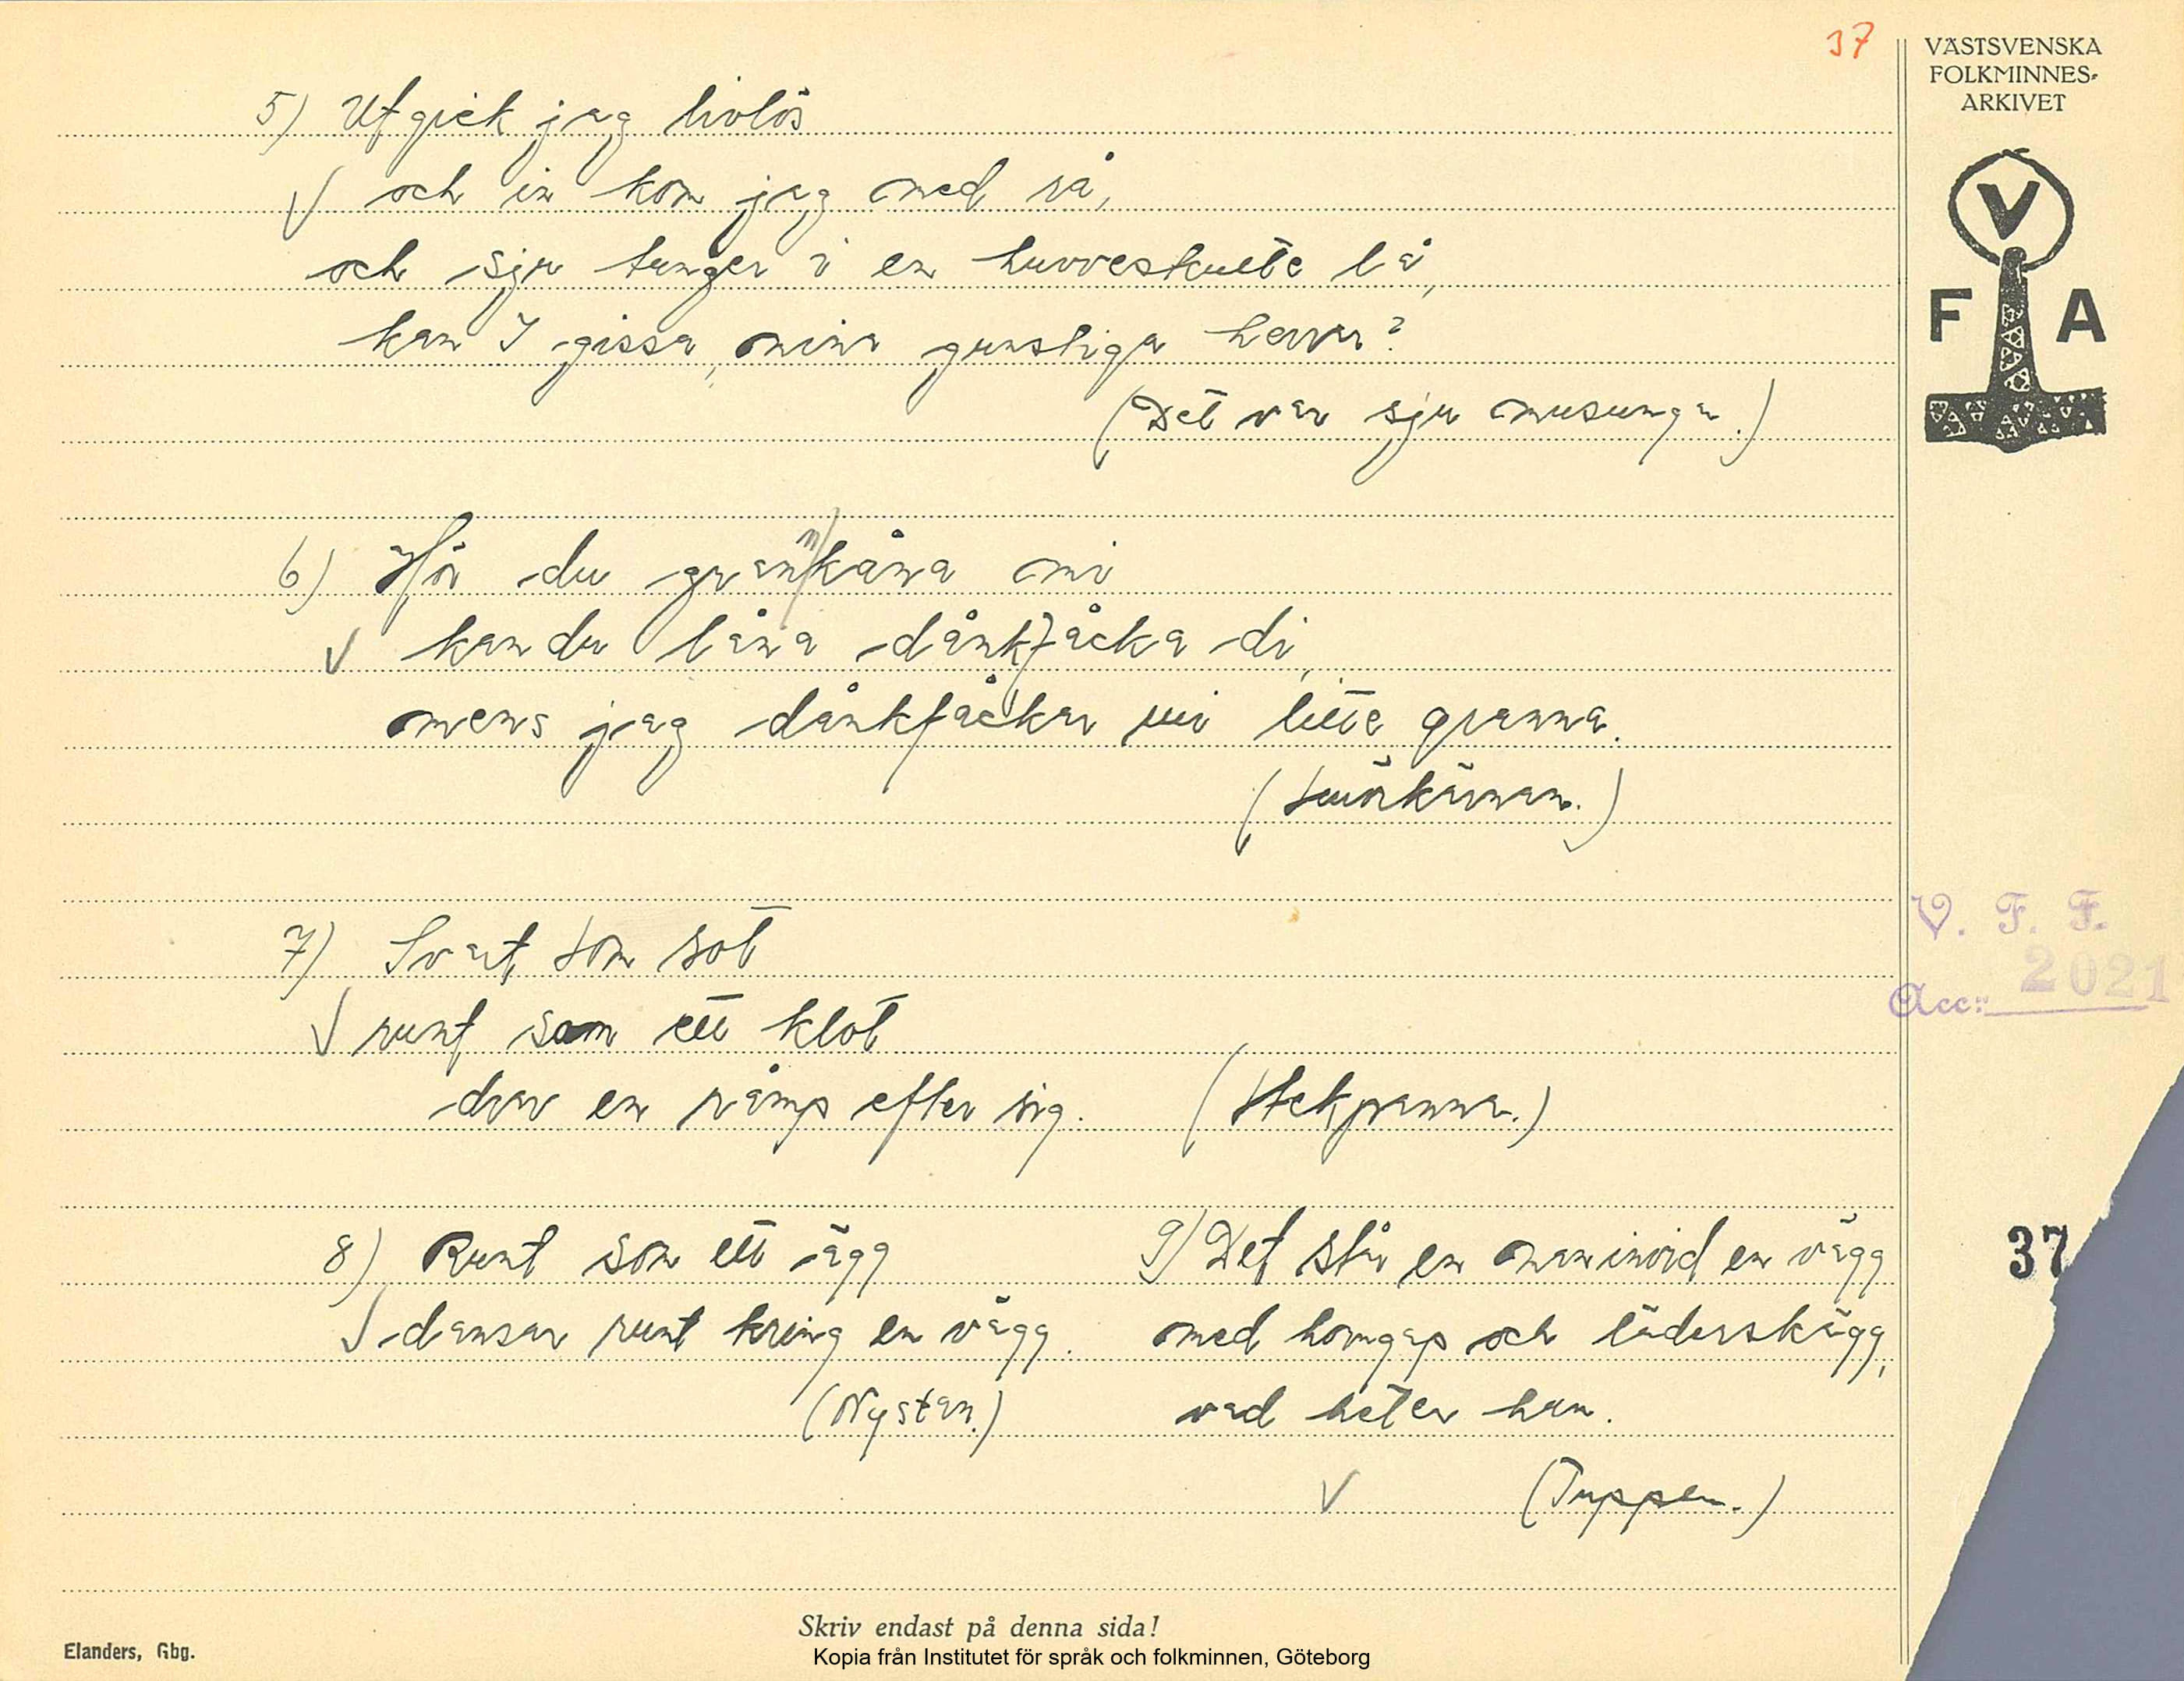 37
VÄSTSVENSKA
FOLKMINNES-
ARKIVET
V
F A
5) Ut gick jag livlös
√ och in kom jag med så,
och sju tunger i en huvveskulte lå,
kan I gissa, mina gunstiga herrar?
(Det var sju musungar.)
6) Hör du grannkåna mi
√ kan du låna dånkfåcka di,
mens jag dånkfåckar mi litte granna.
(Smörkärnan.)
7) Svart som sot
√ runt som ett klot
drar en råmp efter sig. (Stekpanna.)
8) Runt som ett ägg
√ dansar runt kring en vägg.
(Nystan.)
9) Det står en man invid en vägg
med horngap och läderskägg,
vad heter han.
√ (Tuppen.)
V. F. F.
Acc:n 2021
37
Skriv endast på denna sida!
Elanders, Gbg.
Kopia från Institutet för språk och folkminnen, Göteborg